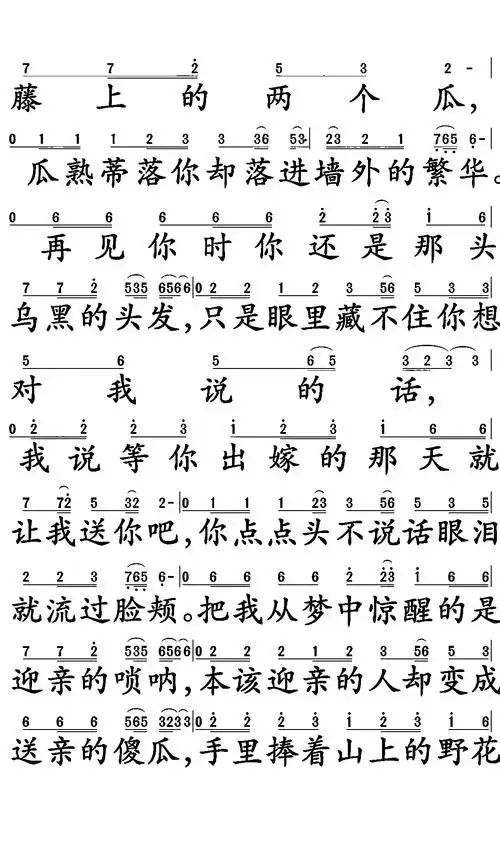 7 7 2 5 3 2 -
藤上的两个瓜，
0 1 1 1 2 3 3 36 53 23 2 1 765 6 -
瓜熟蒂落你却落进墙外的繁华。
0 6 6 6 6 6 2 23 1 6
再见你时你还是那头
7 7 2 535 6566 0 2 2 1 2 3 56 5 3 3
乌黑的头发，只是眼里藏不住你想
5 6 5 6 5 3 2 3 3
对我说的话，
0 2 2 2 3 1 2 3 1 6 6
我说等你出嫁的那天就
7 72 5 32 2 - 0 1 1 1 23 3 56 5 3 5
让我送你吧，你点点头不说话眼泪
2 2 3 765 6 - 0 6 6 6 6 2 23 1 6 6
就流过脸颊。把我从梦中惊醒的是
7 7 2 535 6566 0 2 2 1 2 3 56 5 3
迎亲的唢呐，本该迎亲的人却变成
6 6 6 565 3233 0 2 2 2 3 1 2 3 1 6
送亲的傻瓜，手里捧着山上的野花